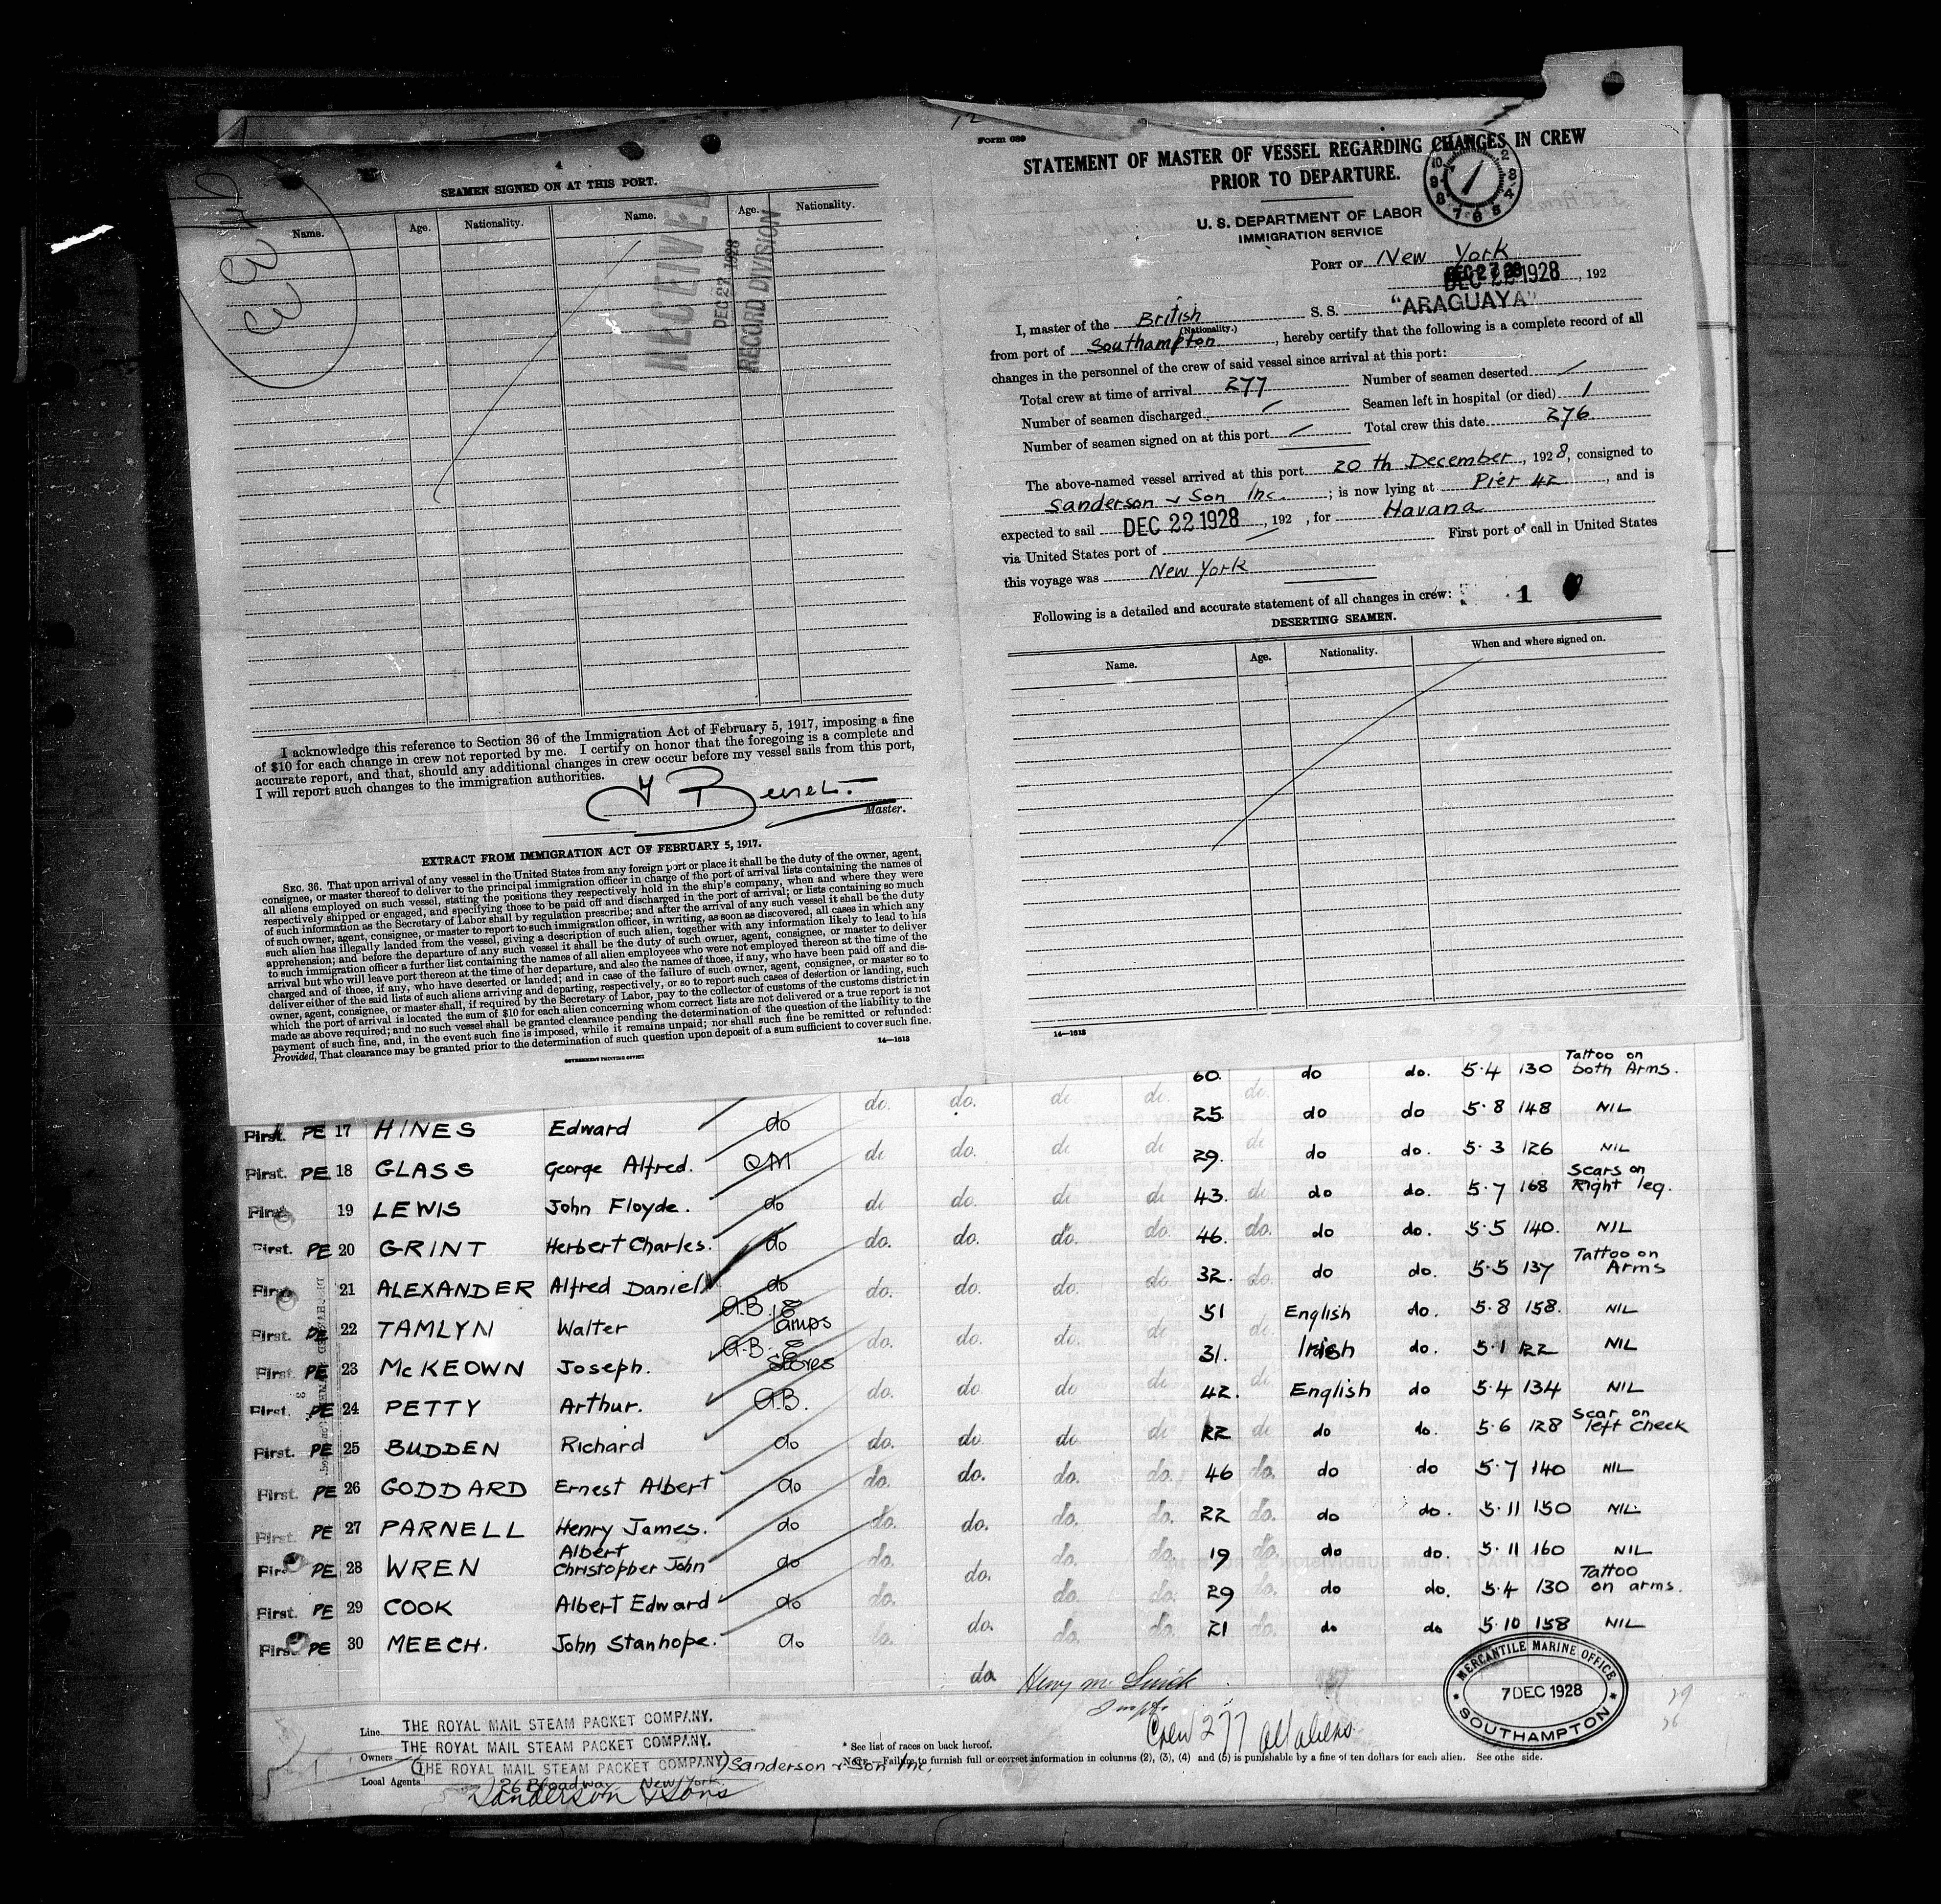 4
SEAMEN SIGNED ON AT THIS PORT.
Name. Age. Nationality. Name. Age. Nationality.
RECEIVED
DEC 27 1928
RECORD DIVISION
I acknowledge this reference to Section 36 of the Immigration Act of February 5, 1917, imposing a fine
of $10 for each change in crew not reported by me. I certify on honor that the foregoing is a complete and
accurate report, and that, should any additional changes in crew occur before my vessel sails from this port,
I will report such changes to the immigration authorities.
Master.
EXTRACT FROM IMMIGRATION ACT OF FEBRUARY 5, 1917.
SEC. 36. That upon arrival of any vessel in the United States from any foreign port or place it shall be the duty of the owner, agent,
consignee, or master thereof to deliver to the principal immigration officer in charge of the port of arrival lists containing the names of
all aliens employed on such vessel, stating the positions they respectively hold in the ship's company, when and where they were
respectively shipped or engaged, and specifying those to be paid off and discharged in the port of arrival; or lists containing so much
of such information as the Secretary of Labor shall by regulation prescribe; and after the arrival of any such vessel it shall be the duty
of such owner, agent, consignee, or master to report to such immigration officer, in writing, as soon as discovered, all cases in which any
such alien has illegally landed from the vessel, giving a description of such alien, together with any information likely to lead to his
apprehension; and before the departure of any such vessel it shall be the duty of such owner, agent, consignee, or master to deliver
to such immigration officer a further list containing the names of all alien employees who were not employed thereon at the time of the
arrival but who will leave port thereon at the time of her departure, and also the names of those, if any, who have been paid off and dis-
charged and of those, if any, who have deserted or landed; and in case of the failure of such owner, agent, consignee, or master so to
deliver either of the said lists of such aliens arriving and departing, respectively, or so to report such cases of desertion or landing, such
owner, agent, consignee, or master shall, if required by the Secretary of Labor, pay to the collector of customs of the customs district in
which the port of arrival is located the sum of $10 for each alien concerning whom correct lists are not delivered or a true report is not
made as above required; and no such vessel shall be granted clearance pending the determination of the question of the liability to the
payment of such fine, and, in the event such fine is imposed, while it remains unpaid; nor shall such fine be remitted or refunded:
Provided, That clearance may be granted prior to the determination of such question upon deposit of a sum sufficient to cover such fine.
GOVERNMENT PRINTING OFFICE 14—1613
Form 689
STATEMENT OF MASTER OF VESSEL REGARDING CHANGES IN CREW
PRIOR TO DEPARTURE.
U. S. DEPARTMENT OF LABOR
IMMIGRATION SERVICE
PORT OF New York
DEC 22 1928, 192
I, master of the British S. S. "ARAGUAYA"
(Nationality.)
from port of Southampton, hereby certify that the following is a complete record of all
changes in the personnel of the crew of said vessel since arrival at this port:
Total crew at time of arrival 277 Number of seamen deserted /
Number of seamen discharged / Seamen left in hospital (or died) 1
Number of seamen signed on at this port / Total crew this date 276
The above-named vessel arrived at this port 20 th December, 1928, consigned to
Sanderson & Son Inc.; is now lying at Pier 42, and is
expected to sail DEC 22 1928, 192 , for Havana
via United States port of First port of call in United States
this voyage was New York
Following is a detailed and accurate statement of all changes in crew: 1
DESERTING SEAMEN.
Name. Age. Nationality. When and where signed on.
14—1613
60. do do. 5·4 130 Tattoo on both Arms.
First. PE 17 HINES Edward do do. do. do do 25 do do 5·8 148 NIL
First. PE 18 GLASS George Alfred. QM do do. do do 29. do do do. 5·3 126 NIL
First 19 LEWIS John Floyde. do do do. do do 43. do do do. 5·7 168 Scars on Right leg.
First. PE 20 GRINT Herbert Charles. do do. do. do. do. 46. do. do do. 5·5 140. NIL
First 21 ALEXANDER Alfred Daniel do do. do. do. do 32. do. do do. 5·5 137 Tattoo on Arms
First. PE 22 TAMLYN Walter A.B. & Lamps do. do. do. do 51 do. English do. 5·8 158. NIL
First. PE 23 McKEOWN Joseph. A.B. & Stores do. do. do. do 31. Irish do. 5·1 122 NIL
First. PE 24 PETTY Arthur. A.B. do. do. do do 42. do English do 5·4 134 NIL
First. PE 25 BUDDEN Richard do do. do. do. do 22 do do do. 5·6 128 Scar on left Cheek
First. PE 26 GODDARD Ernest Albert do do. do. do. do. 46 do. do do 5·7 140 NIL
First. PE 27 PARNELL Henry James. do do. do. do. do. 22 do. do do. 5·11 150 NIL
First PE 28 WREN Albert Christopher John do do. do. do. do. 19 do. do do. 5·11 160 NIL
First. PE 29 COOK Albert Edward do do. do. do. do. 29 do. do do. 5·4 130 Tattoo on arms.
First PE 30 MEECH. John Stanhope. do do. do. do. do. 21 do. do do 5·10 158 NIL
do.
MERCANTILE MARINE OFFICE
7 DEC 1928
SOUTHAMPTON
Crew 277 all aliens.
Line THE ROYAL MAIL STEAM PACKET COMPANY.
Owners THE ROYAL MAIL STEAM PACKET COMPANY.
Local Agents (THE ROYAL MAIL STEAM PACKET COMPANY) Sanderson & Son Inc.
26 Broadway New York.
Sanderson & Sons
* See list of races on back hereof.
NOTE.—Failure to furnish full or correct information in columns (2), (3), (4) and (5) is punishable by a fine of ten dollars for each alien. See other side.